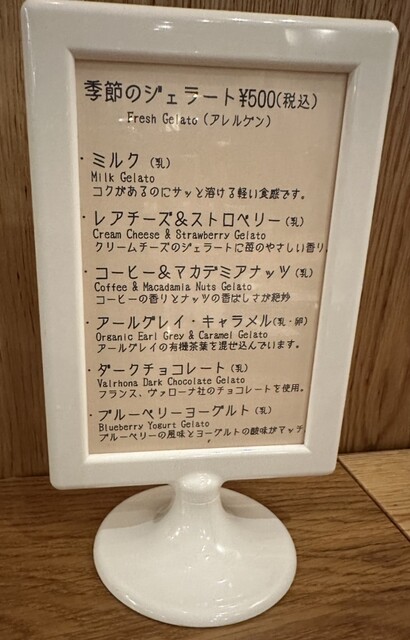 季節のジェラート¥500(税込)
Fresh Gelato (アレルゲン)
・ミルク (乳)
Milk Gelato
コクがあるのにサッと溶ける軽い食感です。
・レアチーズ&ストロベリー(乳)
Cream Cheese & Strawberry Gelato
クリームチーズのジェラートに苺のやさしい香り
・コーヒー&マカデミアナッツ (乳)
Coffee & Macadamia Nuts Gelato
コーヒーの香りとナッツの香ばしさが絶妙
・アールグレイ・キャラメル(乳・卵)
Organic Earl Grey & Caramel Gelato
アールグレイの有機茶葉を混ぜ込んでいます。
・ダークチョコレート(乳)
Valrhona Dark Chocolate Gelato
フランス、ヴァローナ社のチョコレートを使用。
・ブルーベリーヨーグルト (乳)
Blueberry Yogurt Gelato
ブルーベリーの風味とヨーグルトの酸味がマッチ